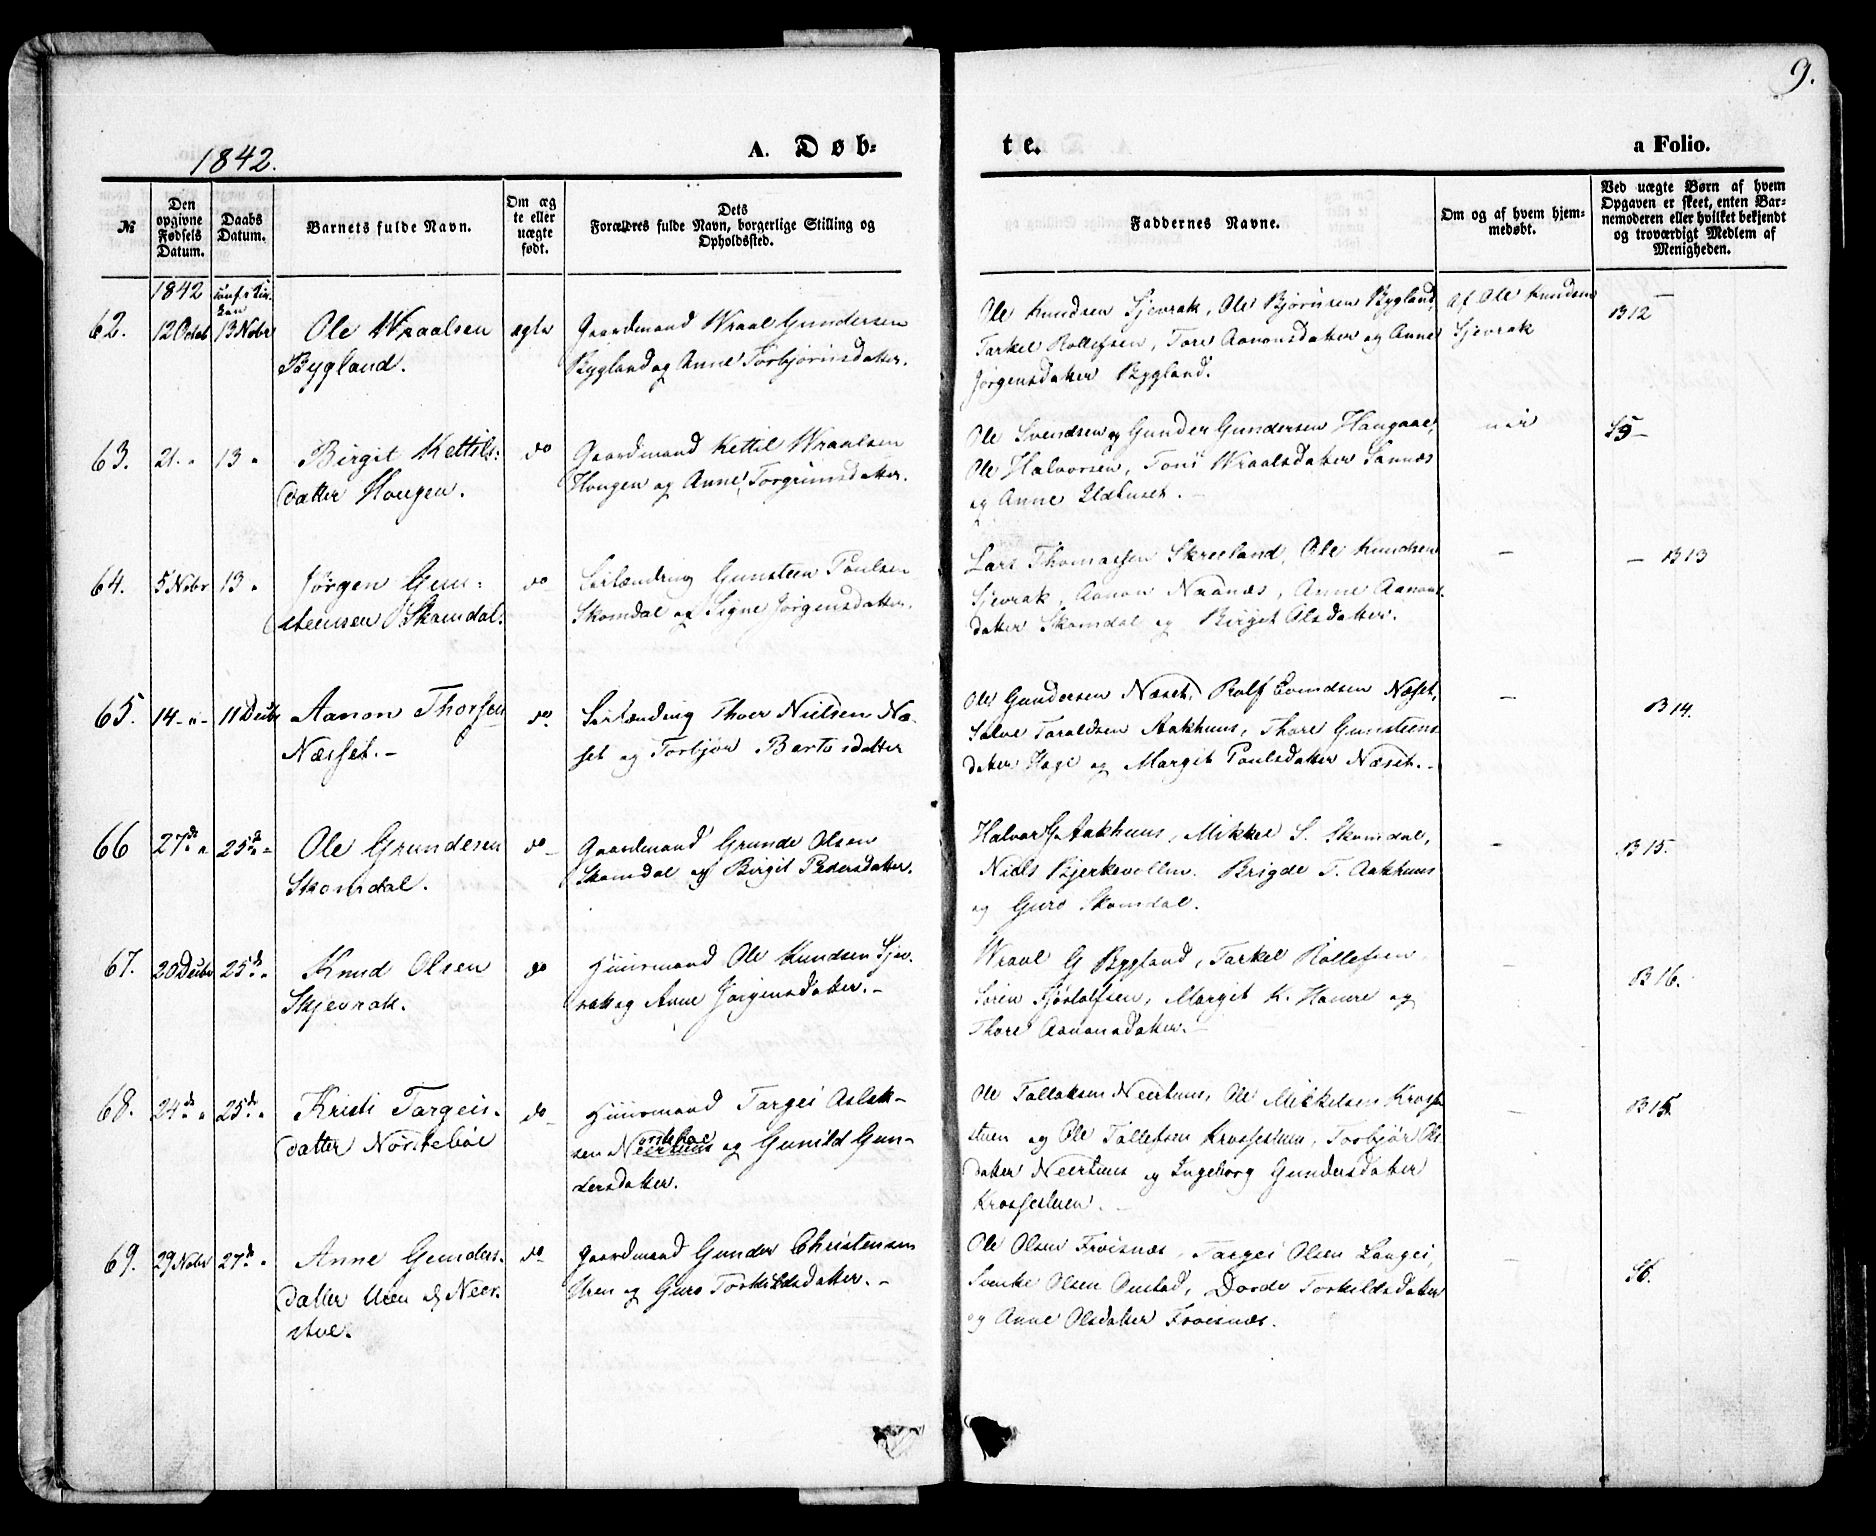 9.
1842.
A. Døb-
te.
a Folio.
№
Den opgivne Fødsels Datum.
Daabs Datum.
Barnets fulde Navn.
Om ægte eller uægte født.
Dets Forældres fulde Navn, borgerlige Stilling og Opholdssted.
Faddernes Navne.
Om og af hvem hjemmedøbt.
Ved uægte Børn af hvem Opgaven er skeet, enten Barnemoderen eller hvilket bekjendt og troværdigt Medlem af Menigheden.
1842
62. 12 Octob 13 Nobr Ole Wraalsen
Bygland.
ægte
Gaardmand Wraal Gundersen
Bygland og Anne Torbjørnsdatter.
Ole Knudsen Sjevrak, Ole Bjørnsen Bygland,
Tarkel Rollefsen, Tore Aanonsdatter og Anne
Jørgensdatter Bygland.
Af Ole Knudsen
Sjevrak
B 12
63. 21. " 13 " Birgit Kettils-
datter Hougen.
do
Gaardmand Kettil Wraalsen
Hougen og Anne Torgrimsdatter.
Ole Svendsen og Gunder Gundersen Haugaae,
Ole Halvorsen, Tone Wraalsdatter Sannæs
og Anne Ildhuset. -
S5-
64. 5 Nobr 13 " Jørgen Gun-
steensen Skomdal.
do
Gunsteen Poulsen
Skomdal og Signe Jørgensdatter.
Lars Thomassen Skreeland, Ole Knudsen
Sjevrak, Aanon Naanæs, Anne Aanons-
datter Skomdal og Birgit Olsdatter.
-
- B 13
65. 14 - " - 11 Decbr Aanon Thorsen
Næsset. -
do.
Thoer Nielsen Næ-
set og Torbjør Bentsdatter
Ole Gundersen Næset, Rolf Evindsen Næset,
Salve Taraldsen Aakhuus, Thore Gunsteens
datter Hage og Margit Poulsdatter Næset. -
-
B 14.
66 27de " 25de " Ole Grundesen
Skomdal.
do -
Gaardmand Grunde Olsen
Skomdal og Birgit Pedersdatter.
Halvor G. Aakhuus, Mikkel S. Skomdal,
Niels Bjerkevollen. Brigde T. Aakhuus
og Guro Skomdal.
-
B 15.
67. 20 Decbr 25de " Knud Olsen
Skjevrak.
do
Huusmand Ole Knudsen Sjev-
rak og Anne Jørgensdatter. -
Wraal G Bygland, Tarkel Rollefsen,
Søren Kjøstolfsen, Margit K. Hamre og
Thore Aanonsdatter. -
-
B 16.
68. 24de " 25de " Kristi Targeis-
datter Norstebøe
do -
Huusmand Targei Aslak-
sen Neertuns og Gunild Gun-
dersdatter.
Ole Tallaksen Neertuns, Ole Mikkelsen Kross
stuen og Ole Tollefsen Krossestuen, Torbjør Ols-
datter Neertuns og Ingeborg Gundersdatter
Krossestuen. -
-
B 15.
69. 29 Nobr 27de " Anne Gunders-
datter Uren
do
Gaardmand Gunder Christensen
Uren og Guro Torkildsdatter. -
Ole Olsen Froisnæs, Targei Olsen Langei,
Svenke Olsen Onstad, Dorde Torkildsdatter
og Anne Olsdatter Froisnæs.
S6.